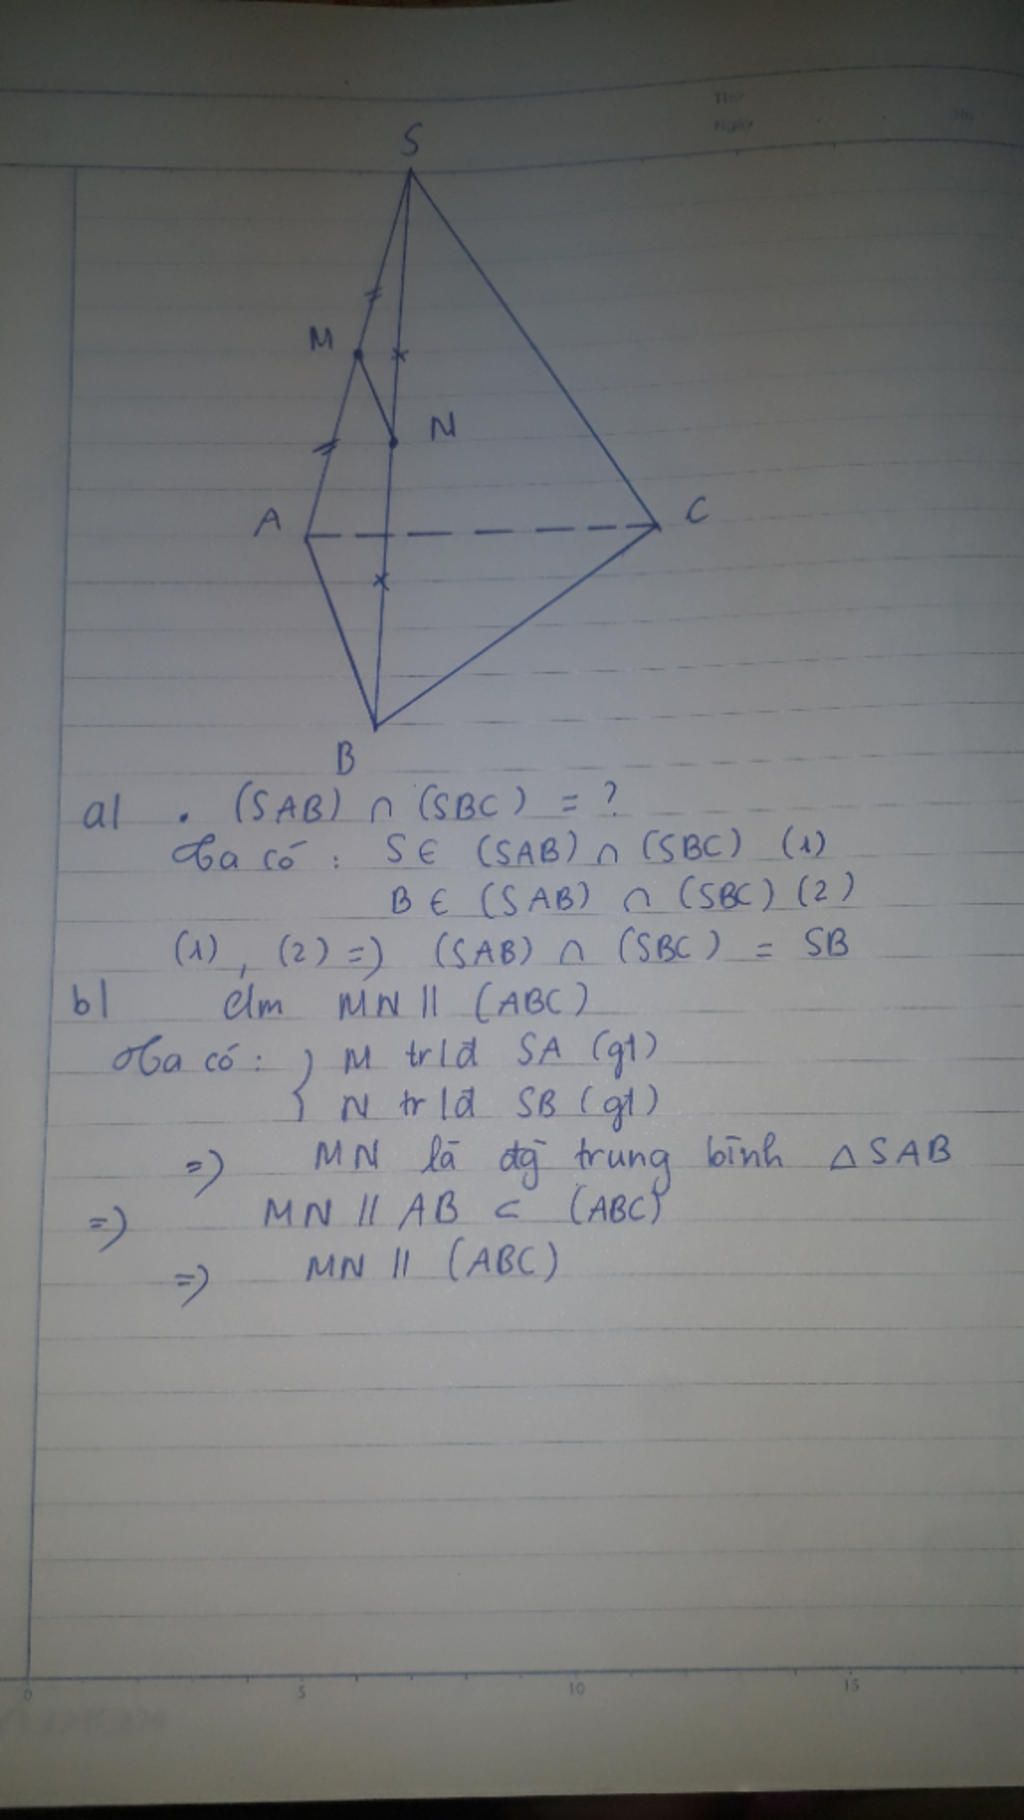 Thứ
Ngày
S
M
N
A
C
B
a| . (SAB) ∩ (SBC) = ?
Ta có : S ∈ (SAB) ∩ (SBC) (1)
B ∈ (SAB) ∩ (SBC) (2)
(1), (2) => (SAB) ∩ (SBC) = SB
b| Cm MN || (ABC)
Ta có : { M trđ SA (gt)
N trđ SB (gt)
=> MN là đg trung bình △SAB
=> MN || AB ⊂ (ABC)
=> MN || (ABC)
0 5 10 15